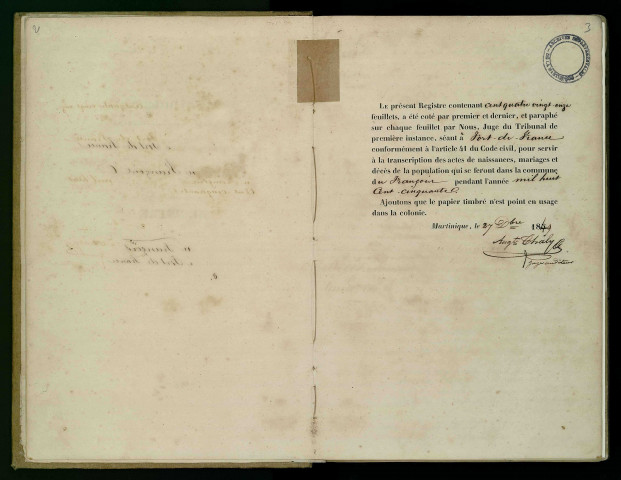 3
Le présent Registre contenant cent quatre vingt onze
feuillets, a été coté par premier et dernier, et paraphé
sur chaque feuillet par Nous, Juge du Tribunal de
première instance, séant à Fort de France
conformément à l'article 41 du Code civil, pour servir
à la transcription des actes de naissances, mariages et
décès de la population qui se feront dans la commune
du François pendant l'année mil huit
Cent cinquante
Ajoutons que le papier timbré n'est point en usage
dans la colonie.
Martinique, le 27 Xbre 1849